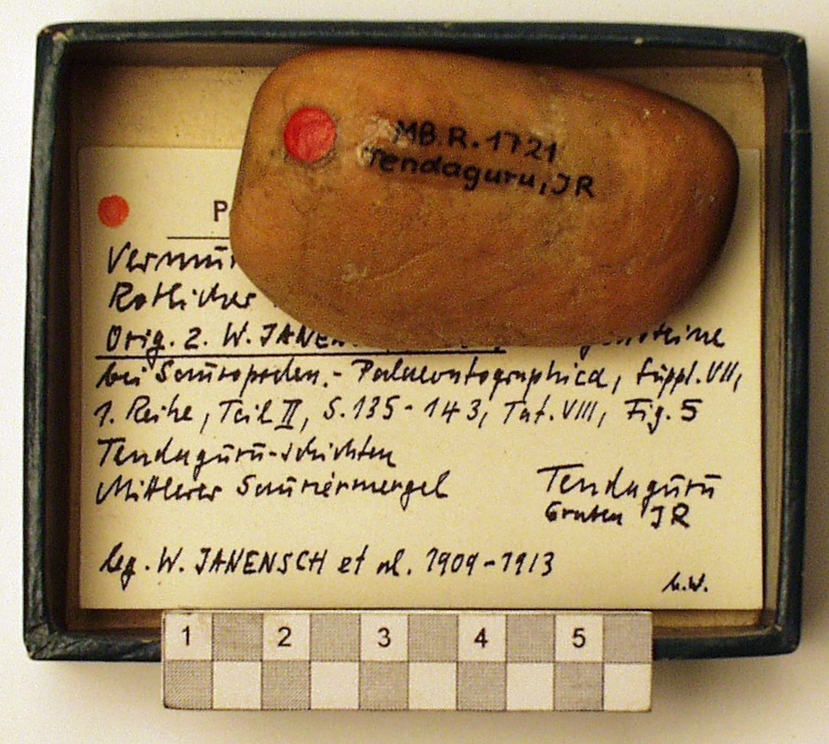 MB.R.1721
Tendaguru, JR
P
Vermu
Rötlicher
Orig. z. W. JANEN steine
bei Sauropoden.- Palaeontographica, Suppl. VII,
1. Reihe, Teil II, S. 135-143, Taf. VIII, Fig. 5
Tendaguru-schichten
Mittlerer Sauriermergel
Tendaguru
Graben JR
leg. W. JANENSCH et al. 1909-1913
1 2 3 4 5